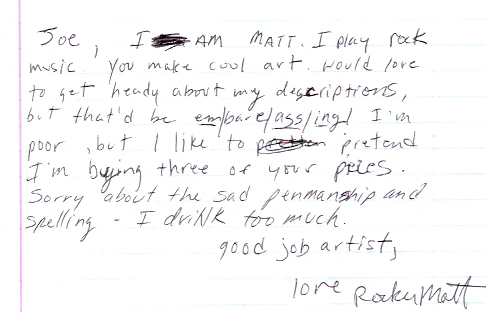 Joe, I AM MATT. I play rock
music. You make cool art. Would love
to get heady about my descriptions,
but that'd be em/bare/ass/ing! I'm
poor, but I like to pretend
I'm buying three of your peices.
Sorry about the sad penmanship and
spelling - I driNK too much.
good job artist,
love RockerMatt